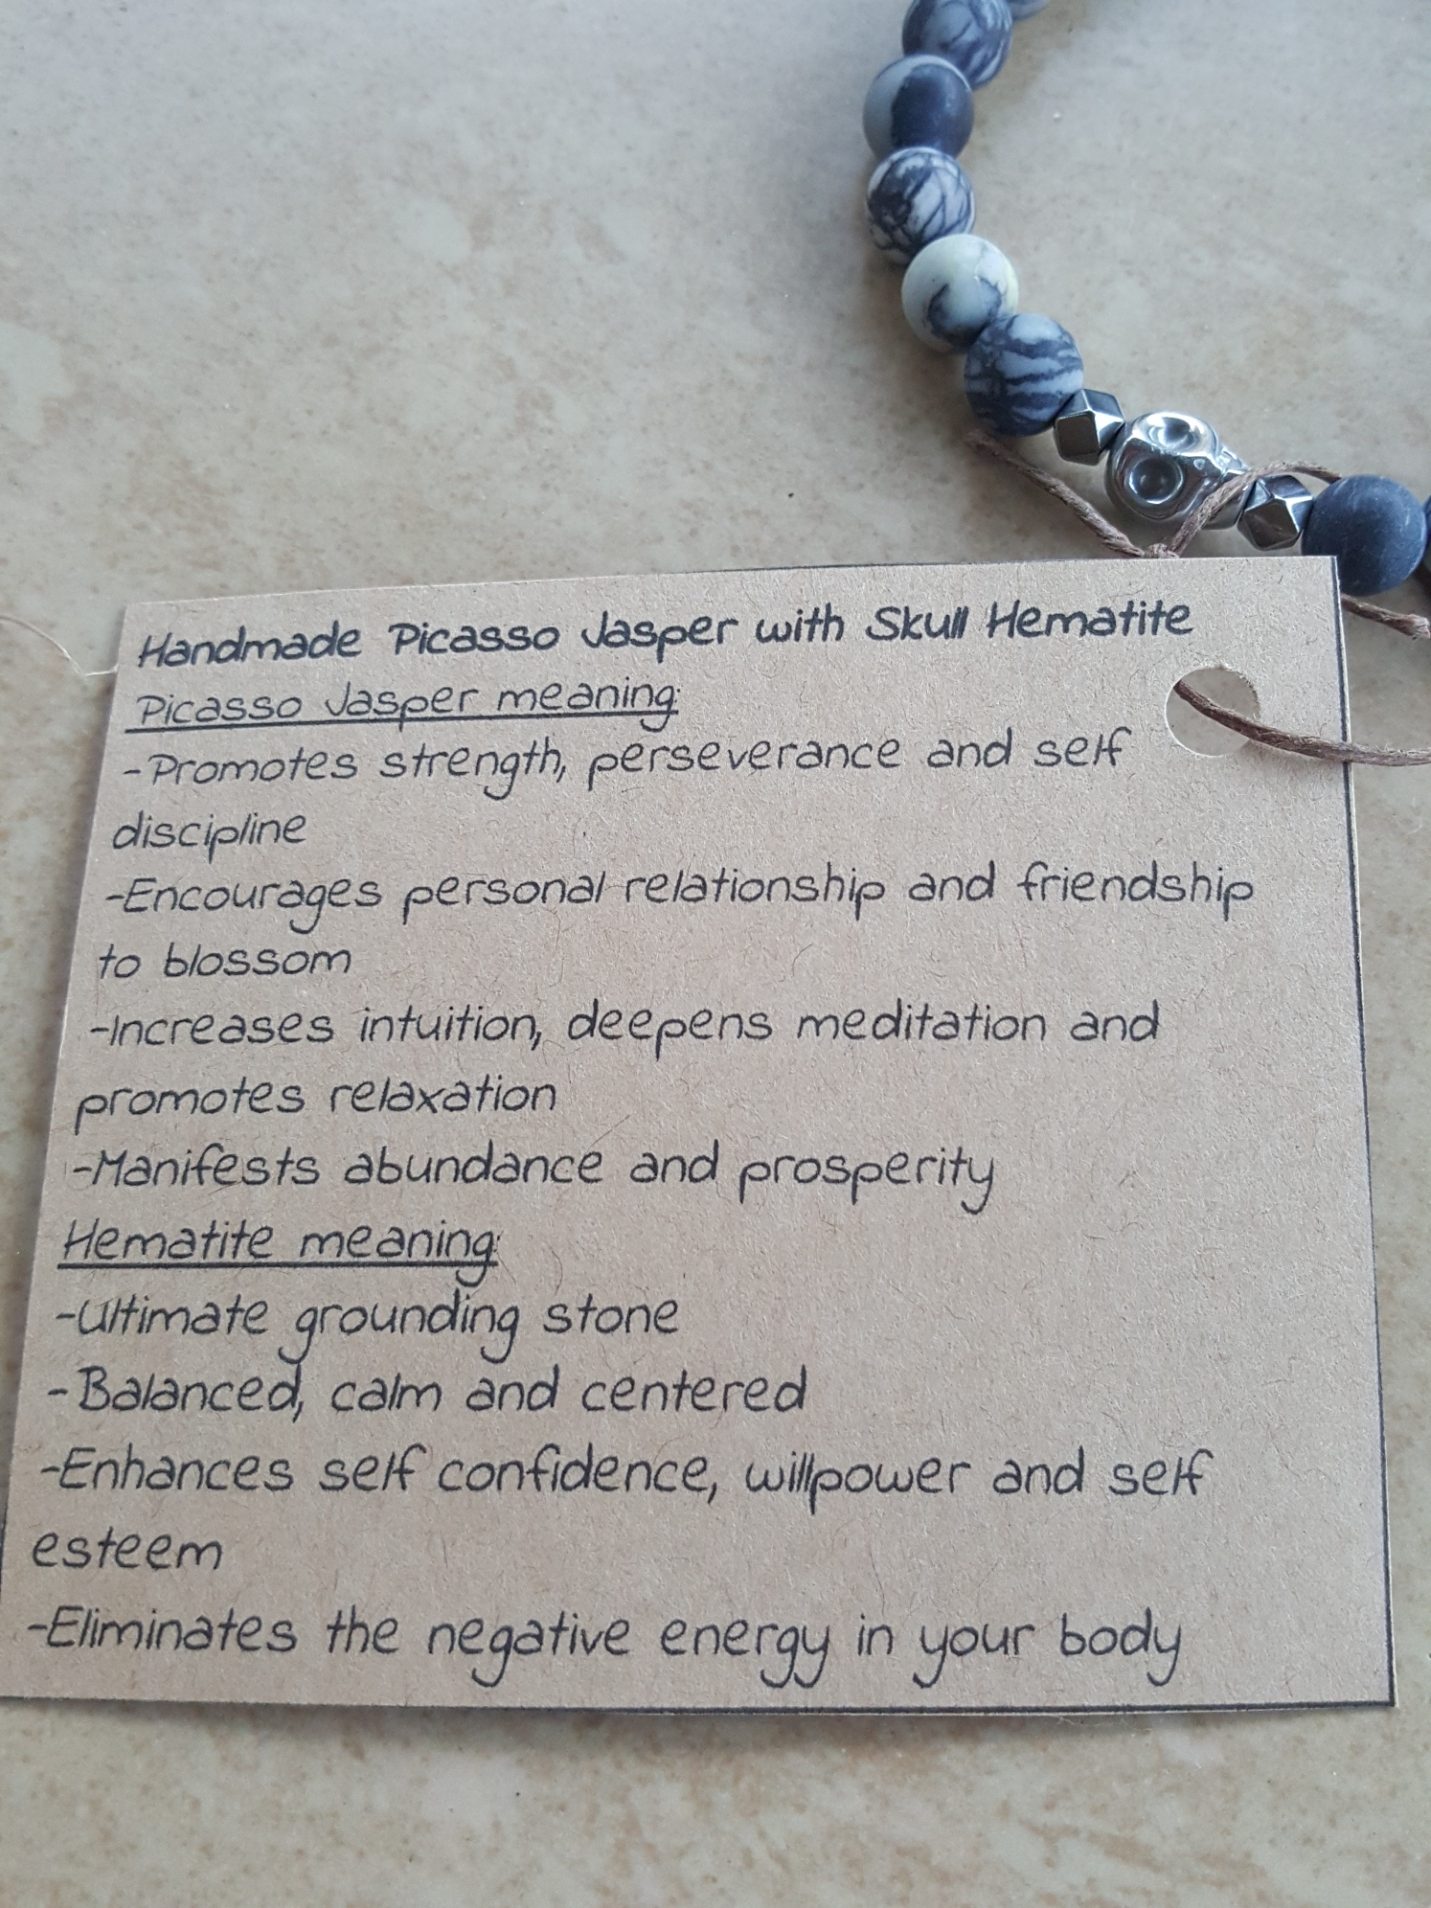 Handmade Picasso Jasper with Skull Hematite
Picasso Jasper meaning:
-Promotes strength, perseverance and self
discipline
-Encourages personal relationship and friendship
to blossom
-Increases intuition, deepens meditation and
promotes relaxation
-Manifests abundance and prosperity
Hematite meaning:
-Ultimate grounding stone
-Balanced, calm and centered
-Enhances self confidence, willpower and self
esteem
-Eliminates the negative energy in your body